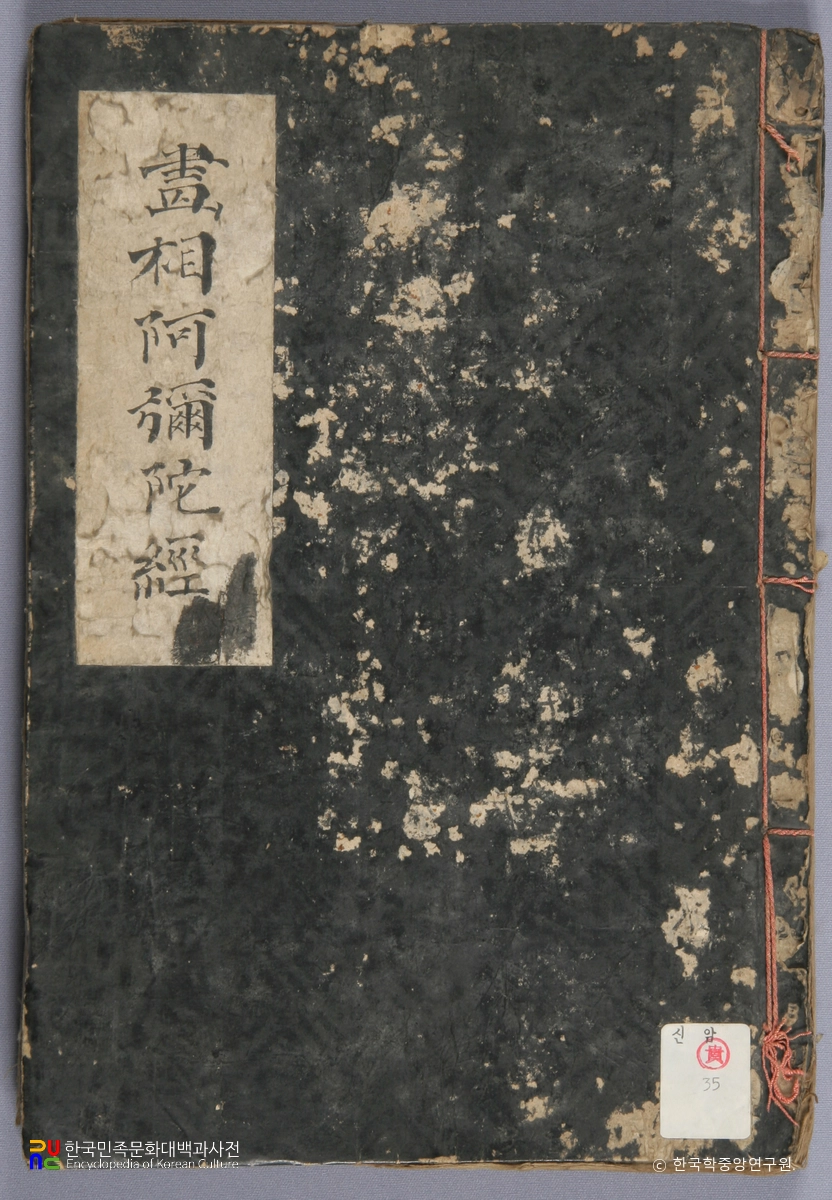 畵相阿彌陀經
신 암
貴
35
한국민족문화대백과사전
Encyclopedia of Korean Culture
© 한국학중앙연구원